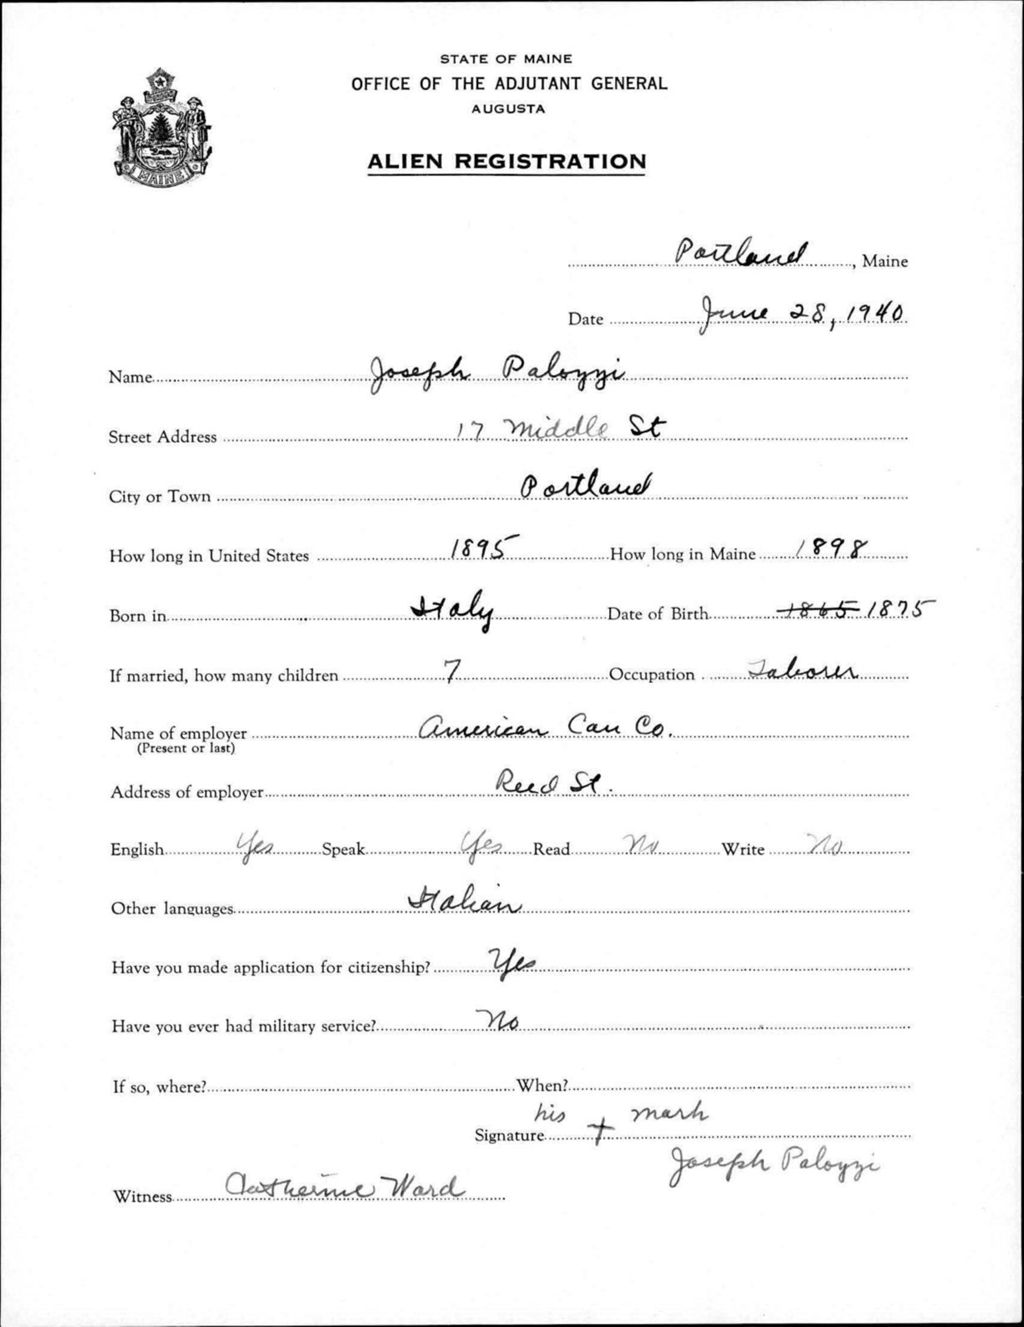 STATE OF MAINE
OFFICE OF THE ADJUTANT GENERAL
AUGUSTA
ALIEN REGISTRATION
MAINE
Portland, Maine
Date June 28, 1940
Name Joseph Palozzi
Street Address 17 Middle St
City or Town Portland
How long in United States 1895 How long in Maine 1898
Born in Italy Date of Birth 1865 1875
If married, how many children 7 Occupation Laborer
Name of employer American Can Co.
(Present or last)
Address of employer Reed St.
English Yes Speak Yes Read No Write No
Other languages Italian
Have you made application for citizenship? Yes
Have you ever had military service? No
If so, where? When?
his + mark
Signature
Joseph Palozzi
Witness Catherine Ward